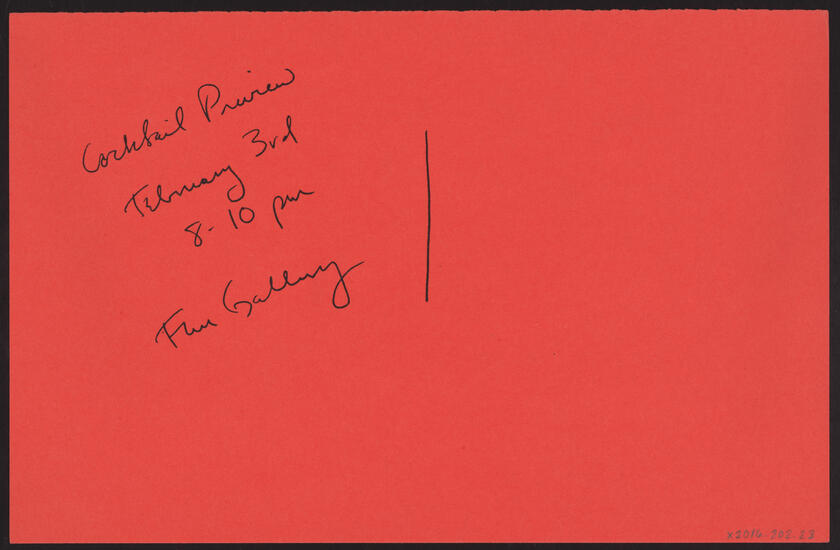 Cocktail Preview
February 3rd
8-10 pm
Fun Gallery
x2016-202.23